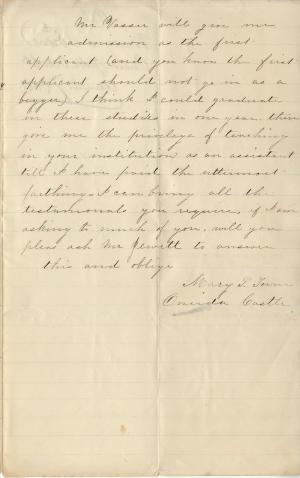 Mr Vasser will give me
admission as the first
applicant (and you know the first
applicant should not go in as a
begger) I think I could graduate
in these studies in one year then
give me the privilege of teaching
in your institution as an assistant
till I have paid the uttermost
farthing. I can bring all the
testimonials you require, if I am
asking to much of you, will you
pleas ask Mr Jewett to answer
this and oblige
Mary T.
Oneida Castle